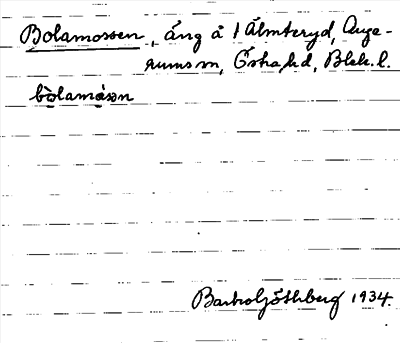 Bolamossen, äng å 1 Älmteryd, Auge-
rums sn, Östra hd, Blek. l.
bòlamåsn
Bartrolf Göthberg 1934.